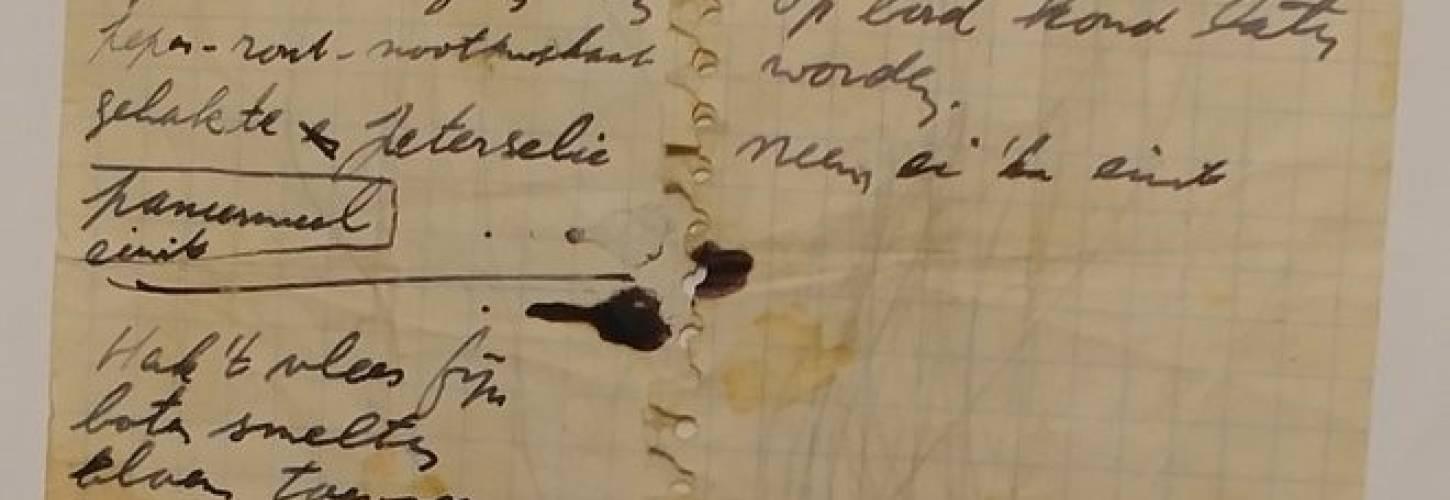 peper - zout - nootmuskaat
gehakte peterselie
paneermeel
eiwit
Hak 't vlees fijn
boter smelten
bloem
op bord koud laten
worden.
Neem ei 'n eiwit